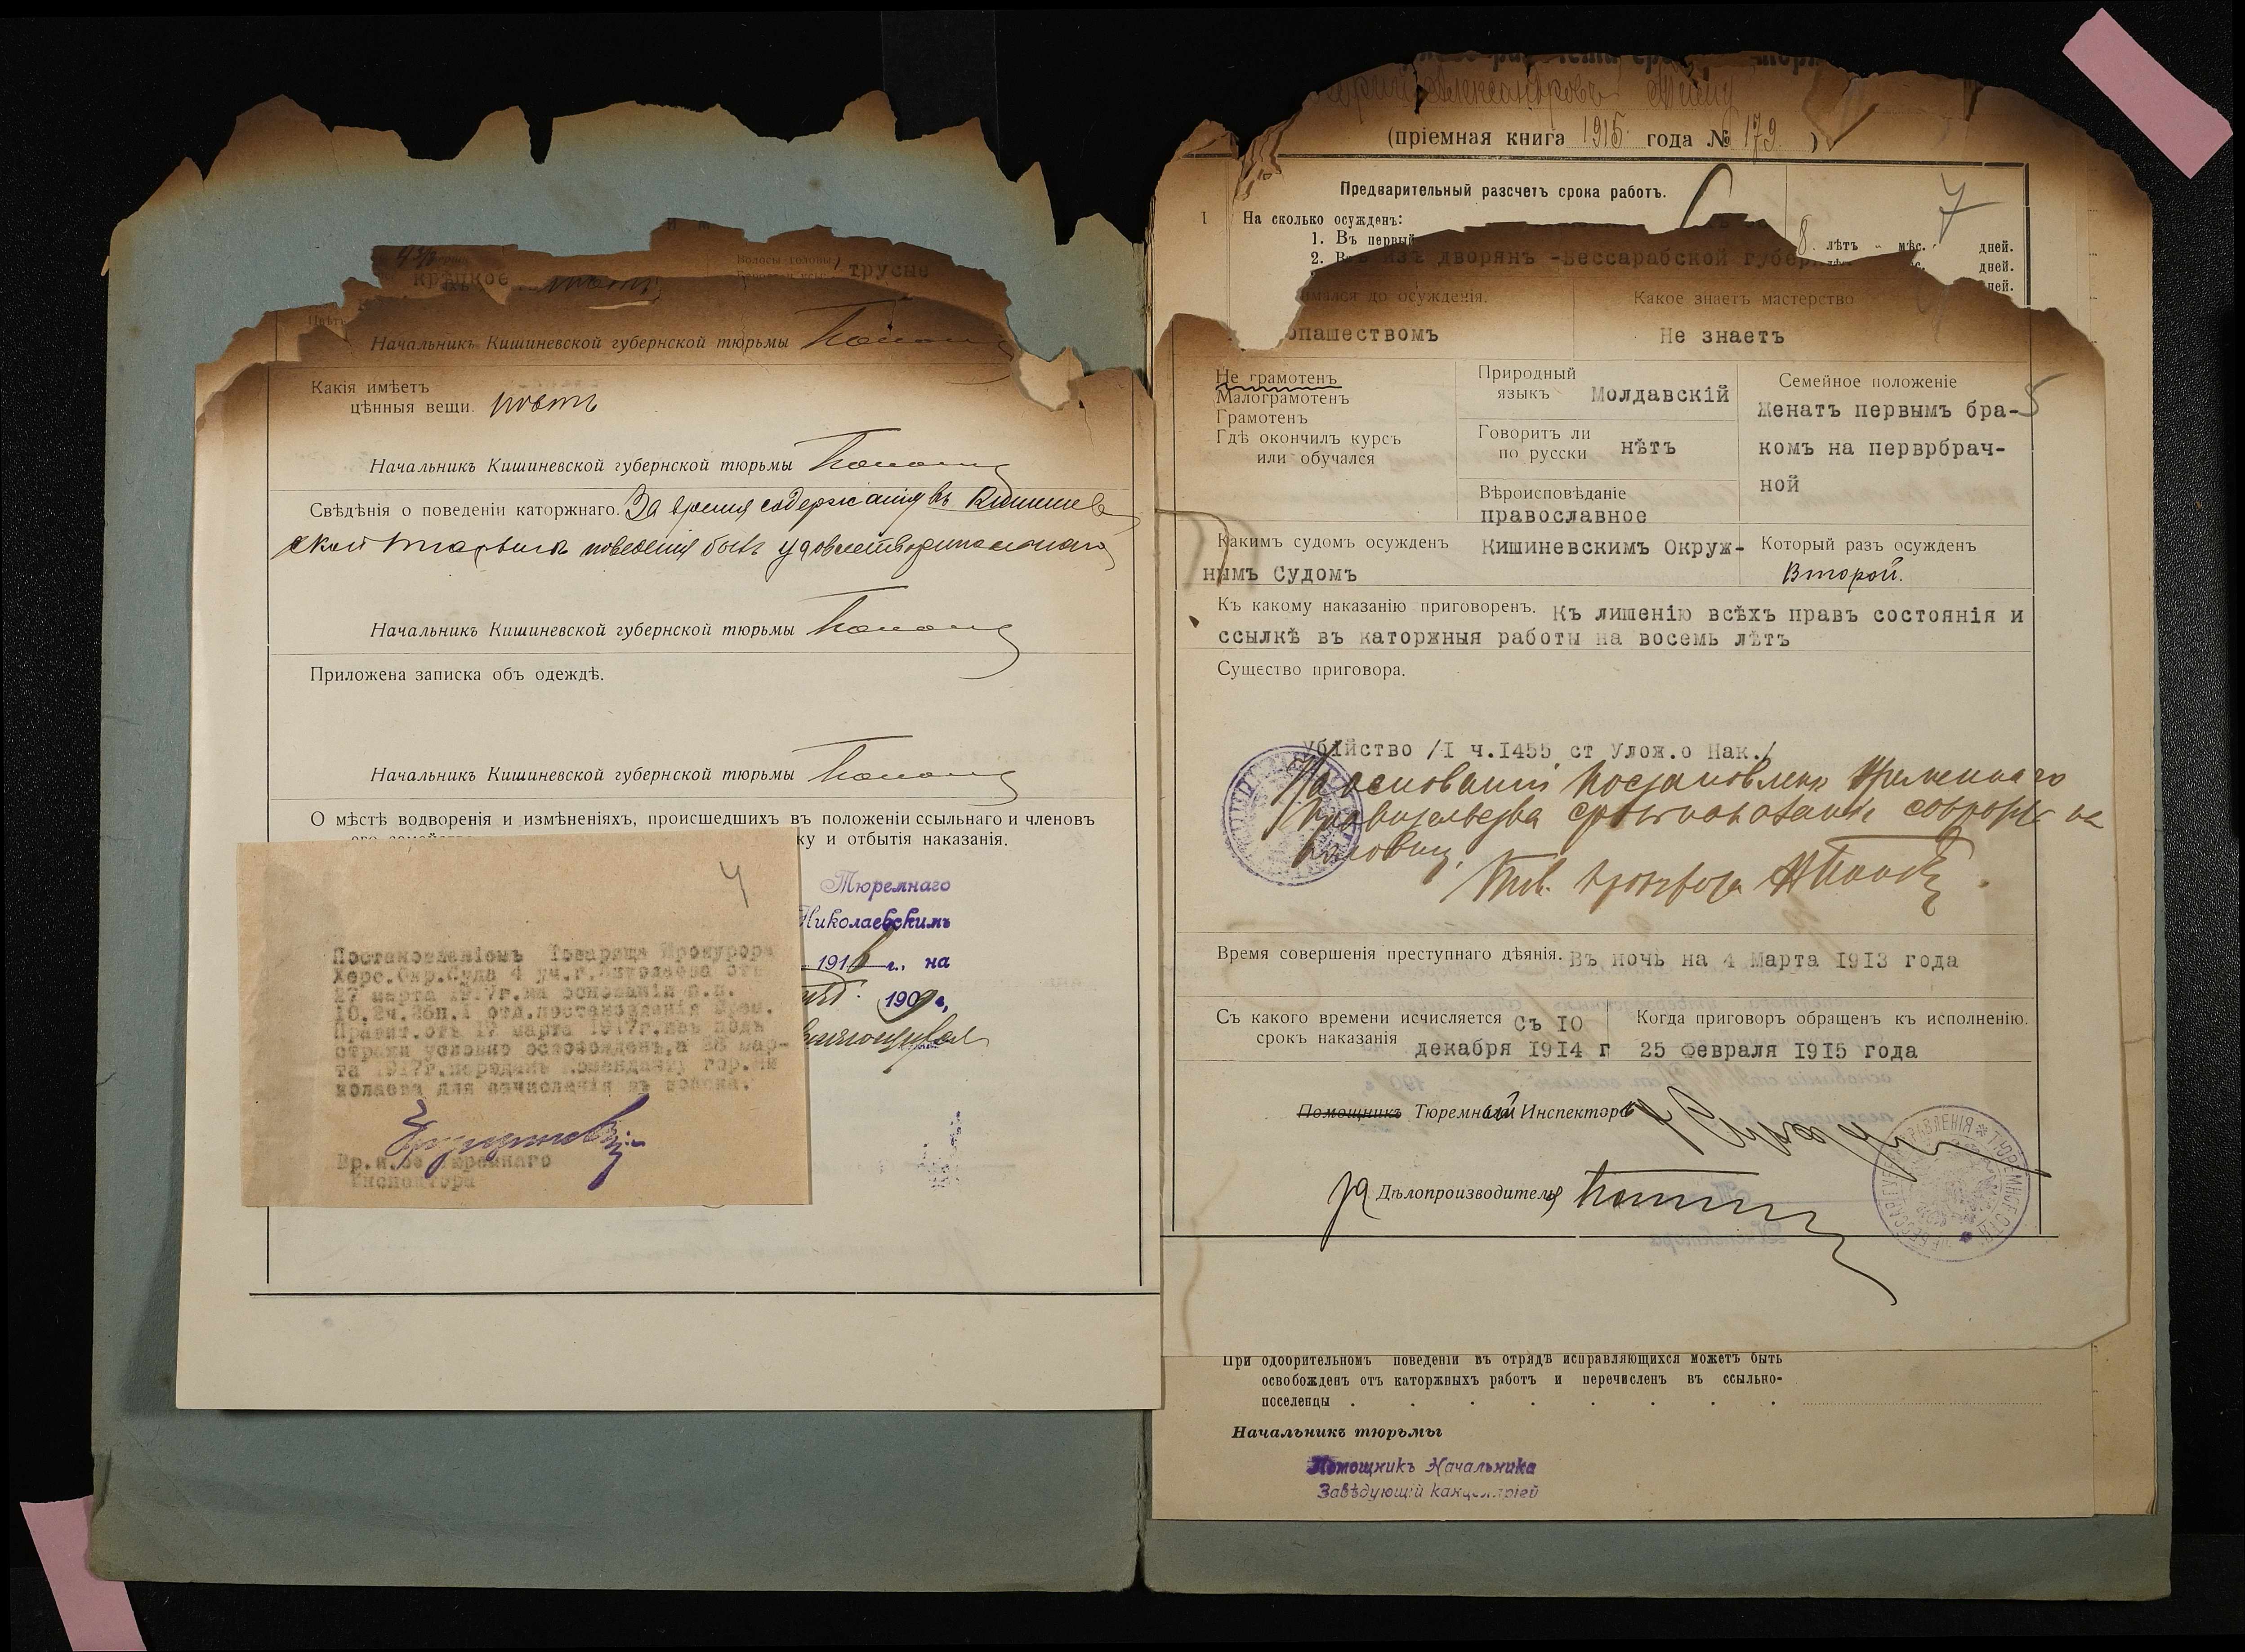 трусые
крѣпкое
Начальникъ Кишиневской губернской тюрьмы
Какія имѣетъ
цѣнныя вещи.
Начальникъ Кишиневской губернской тюрьмы
Свѣдѣнія о поведеніи каторжнаго. За время содержанія въ Кишинев
ской тюрьмѣ поведенія былъ удовлетворительнаго
Начальникъ Кишиневской губернской тюрьмы
Приложена записка объ одеждѣ.
Начальникъ Кишиневской губернской тюрьмы
О мѣстѣ водворенія и измѣненіяхъ, происшедшихъ въ положеніи ссыльнаго и членовъ
ку и отбытія наказанія.
Тюремнаго
Николаевскимъ
191 г., на
190 г,
4
Постановленіемъ Товарища Прокурора
Херс.Окр.Суда 4 уч.г.Николаева отъ
27 марта 1917г.на основаніи п.п.
10,2ч.26п.1 отд.постановленія Врем.
Правит.отъ 17 марта 1917г.изъ подъ
стражи условно освобожденъ,а 28 мар-
та 1917г.переданъ Коменданту гор.Ни
колаева для зачисленія въ войска.
Вр.и.об Тюремнаго
Инспектора
(пріемная книга 1915 года № 179 )
Предварительный разсчетъ срока работъ.
7
I На сколько осужденъ:
1. Въ первый 8 лѣтъ " мѣс. дней.
2. дней.
изъ дворянъ -Бессарабской губер
до осужденія. Какое знаетъ мастерство
опашествомъ Не знаетъ
Не грамотенъ
Малограмотенъ
Грамотенъ
Гдѣ окончилъ курсъ
или обучался
Природный
языкъ Молдавскій
Говоритъ ли
по русски нѣтъ
Вѣроисповѣданіе
православное
Семейное положеніе
Женатъ первымъ бра-
5
комъ на перврбрач-
ной
Какимъ судомъ осужденъ Кишиневскимъ Окруж-
нымъ Судомъ
Который разъ осужденъ
Второй.
Къ какому наказанію приговоренъ. Къ лишенію всѣхъ правъ состоянія и
ссылкѣ въ каторжныя работы на восемь лѣтъ
Существо приговора.
Убійство /I ч.I455 ст Улож.о Нак./
На основаніи постановлен Временнаго
Правительства срокъ наказанія сокращ на
половину.
Тов. Прокурора
Время совершенія преступнаго дѣянія. Въ ночь на 4 Марта I9I3 года
Съ какого времени исчисляется
срокъ наказанія Съ IO
декабря I9I4 г
Когда приговоръ обращенъ къ исполненію.
25 февраля I9I5 года
Помощникъ Тюремный Инспекторъ
За Дѣлопроизводителя
При одобрительномъ поведеніи въ отрядѣ исправляющихся можетъ быть
освобожденъ отъ каторжныхъ работъ и перечисленъ въ ссыльно-
поселенцы
Начальникъ тюрьмы
Помощникъ Начальника
Завѣдующій канцеляріей